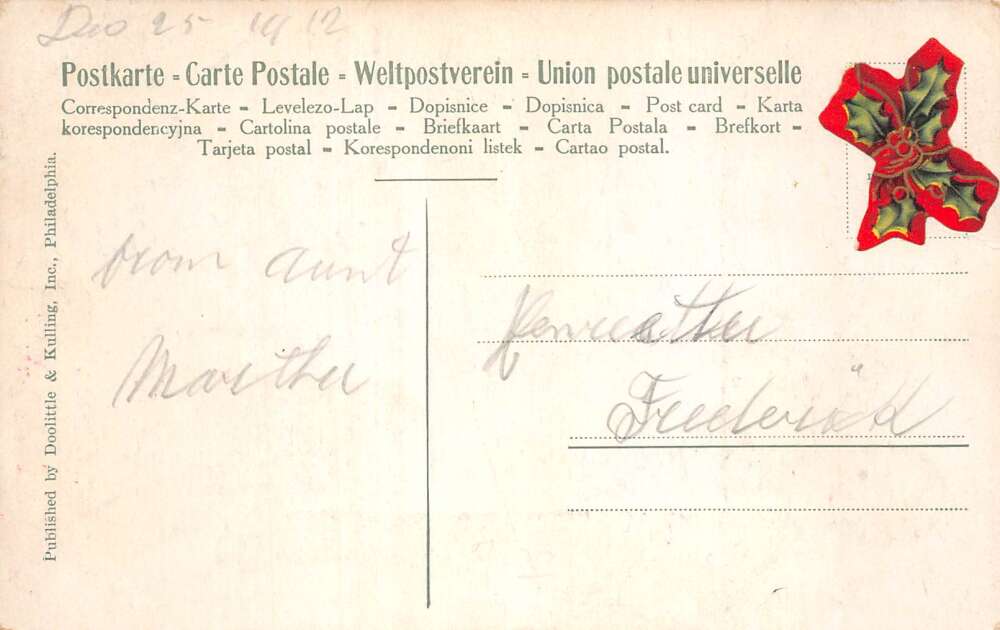 Dec 25 1912
Postkarte = Carte Postale = Weltpostverein = Union postale universelle
Correspondenz-Karte - Levelezo-Lap - Dopisnice - Dopisnica - Post card - Karta
korespondencyjna - Cartolina postale - Briefkaart - Carta Postala - Brefkort -
Tarjeta postal - Korespondenoni listek - Cartao postal.
Published by Doolittle & Kulling, Inc., Philadelphia.
from aunt
Martha
Frederick